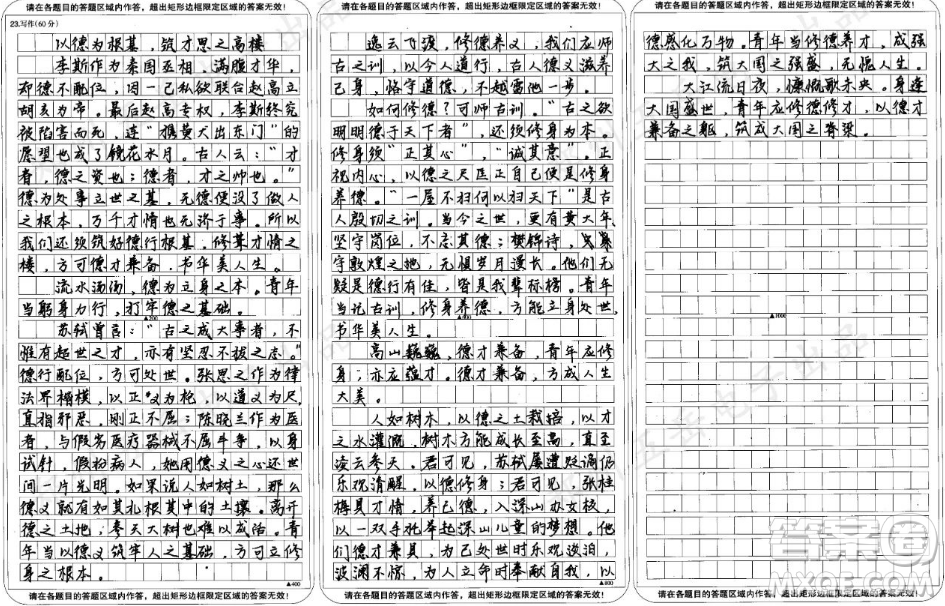 请在各题目的答题区域内作答，超出矩形边框限定区域的答案无效！
23.写作(60分)
以德为根基，筑才思之高楼
李斯作为秦国丞相，满腹才华，
却德不配位，因一己私欲联合赵高立
胡亥为帝。最后赵高专权，李斯终究
被陷害而死，连“携黄犬出东门”的
愿望也成了镜花水月。古人云：“才
者，德之资也；德者，才之帅也。”
德为处事立世之基，无德便没了做人
之根本，万千才情也无济于事。所以
我们还须筑好德行根基，修葺才情之
楼，方可德才兼备，书华美人生。
流水汤汤，德为立身之本。青年
当躬身力行，打牢德之基础。
▲200
苏轼曾言：“古之成大事者，不
惟有超世之才，亦有坚忍不拔之志。”
德行配位，方可处世。张思之作为律
法界楷模，以正义为枪，以道义为尺，
直指邪恶，刚正不屈；陈晓兰作为医
者，与假劣医疗器械不屈斗争，以身
试针，假扮病人，她用德义之心还世
间一片光明。如果说人如树土，那么
德义就有如其扎根其中的土壤。离开
德之土地，参天大树也难以成活。青
年当以德义筑牢人之基础，方可立修
身之根本。
▲400
请在各题目的答题区域内作答，超出矩形边框限定区域的答案无效！
请在各题目的答题区域内作答，超出矩形边框限定区域的答案无效！
逸云飞渡，修德养义，我们应师
古之训，以今人道行，古人德义滋养
己身，恪守道德，不越雷池一步。
如何修德？可师古训。“古之欲
明明德于天下者”，还须修身为本。
修身须“正其心”，“诚其意”。正
视内心，以德之尺匡正自己便是修身
养德。“一屋不扫何以扫天下”是古
人殷切之训。当今之世，更有黄大年
坚守岗位，不忘其德；樊锦诗，
守敦煌之地，无惧岁月漫长。他们无
疑是德行有佳，皆是我辈标榜。青年
当托古训，修身养德，方能立身处世，
▲600
书华美人生。
高山巍巍，德才兼备，青年应修
身；亦应蕴才。德才兼备，方成人生
大美。
人如树木，以德之土栽培，以才
之水灌溉，树木方能成长至高，直至
凌云参天。君可见，苏轼屡遭贬谪仍
乐观清醒，以德修身；君可见，张桂
梅具才情，养己德，入深山办女校，
以一双手托举起深山儿童的梦想。他
们德才兼具，为己处世时乐观淡泊，
波澜不惊，为人立命时奉献自我，以
▲800
请在各题目的答题区域内作答，超出矩形边框限定区域的答案无效！
请在各题目的答题区域内作答，超出矩形边框限定区域的答案无效！
德感化万物。青年当修德养才，成强
大之我，筑大国之强盛，无愧人生。
大江流日夜，慷慨歌未央。身逢
大国盛世，青年应修德修才，以德才
兼备之躯，筑成大国之脊梁。
▲1000
请在各题目的答题区域内作答，超出矩形边框限定区域的答案无效！
答案圈
MXQE.COM